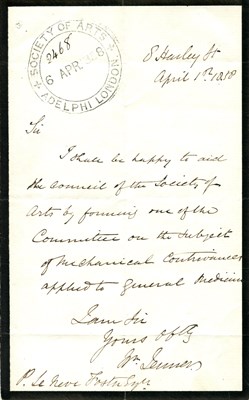 SOCIETY OF ARTS
2468
6 APR 58
ADELPHI LONDON
8 Harley St
April 1st 1858
Sir
I shall be happy to aid
the council of the Society of
Arts by forming one of the
Committee on the subject
of Mechanical Contrivances
applied to General Medicine
I am Sir
Yours Obtly
Wm Jenner
P. Le Neve Foster Esqre